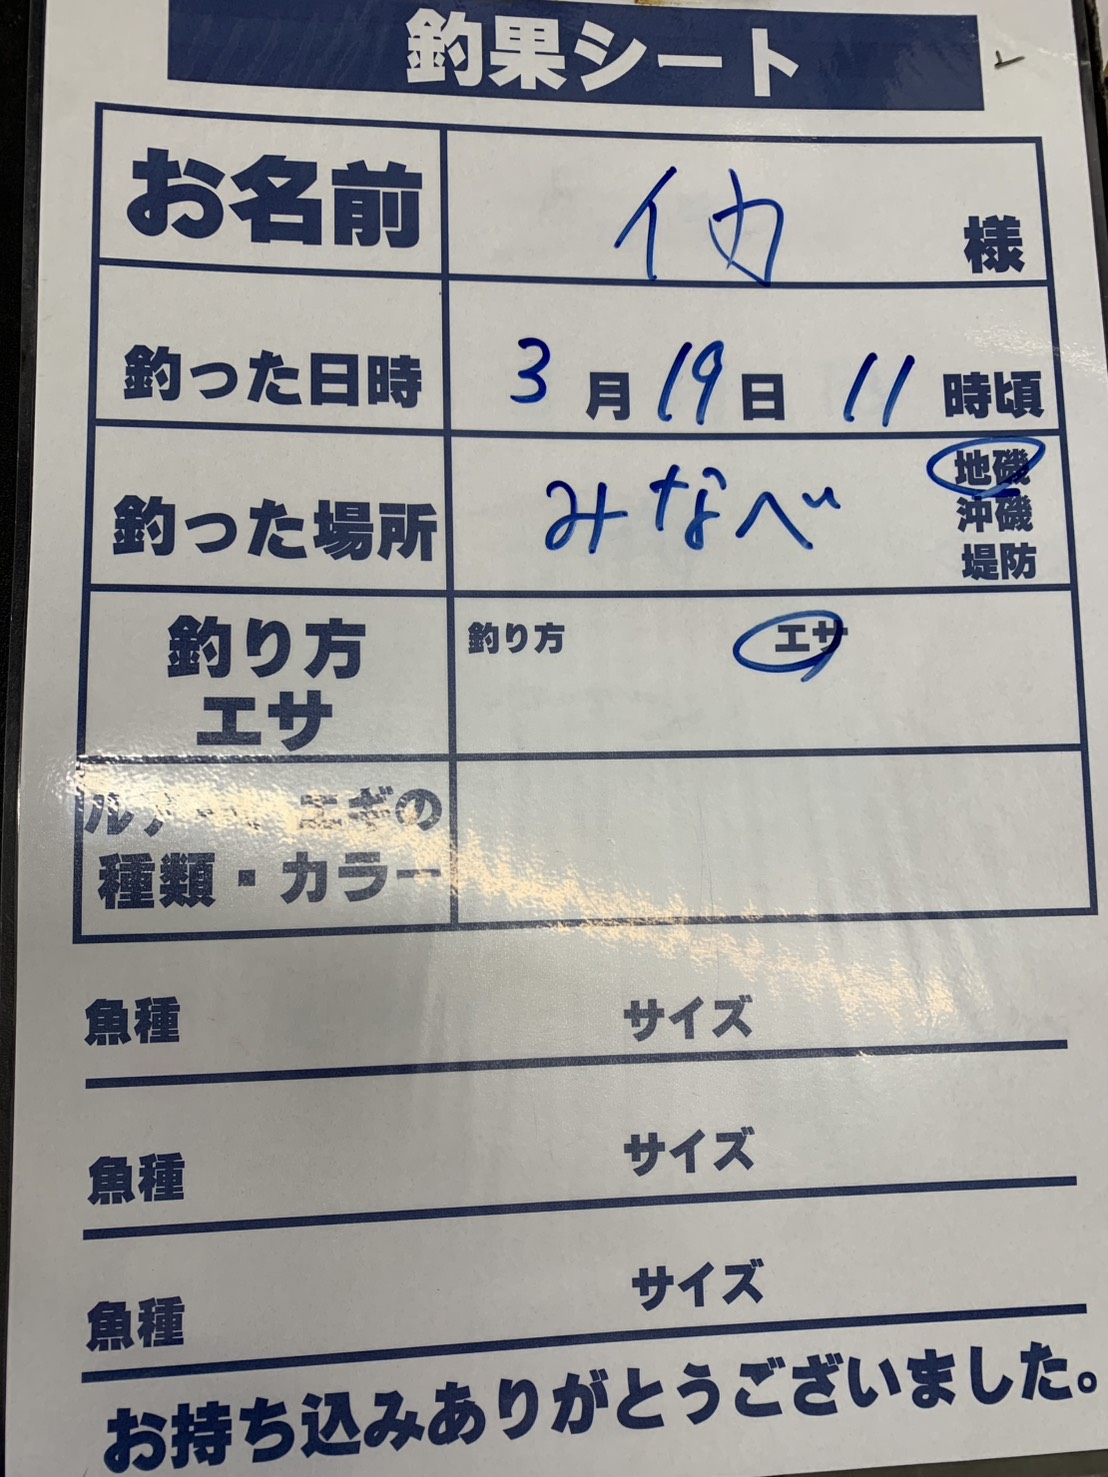 釣果シート
お名前 イカ 様
釣った日時 3月19日 11時頃
釣った場所 みなべ 地磯
沖磯
堤防
釣り方
エサ
釣り方 エサ
ルアー・エギの
種類・カラー
魚種 サイズ
魚種 サイズ
魚種 サイズ
お持ち込みありがとうございました。